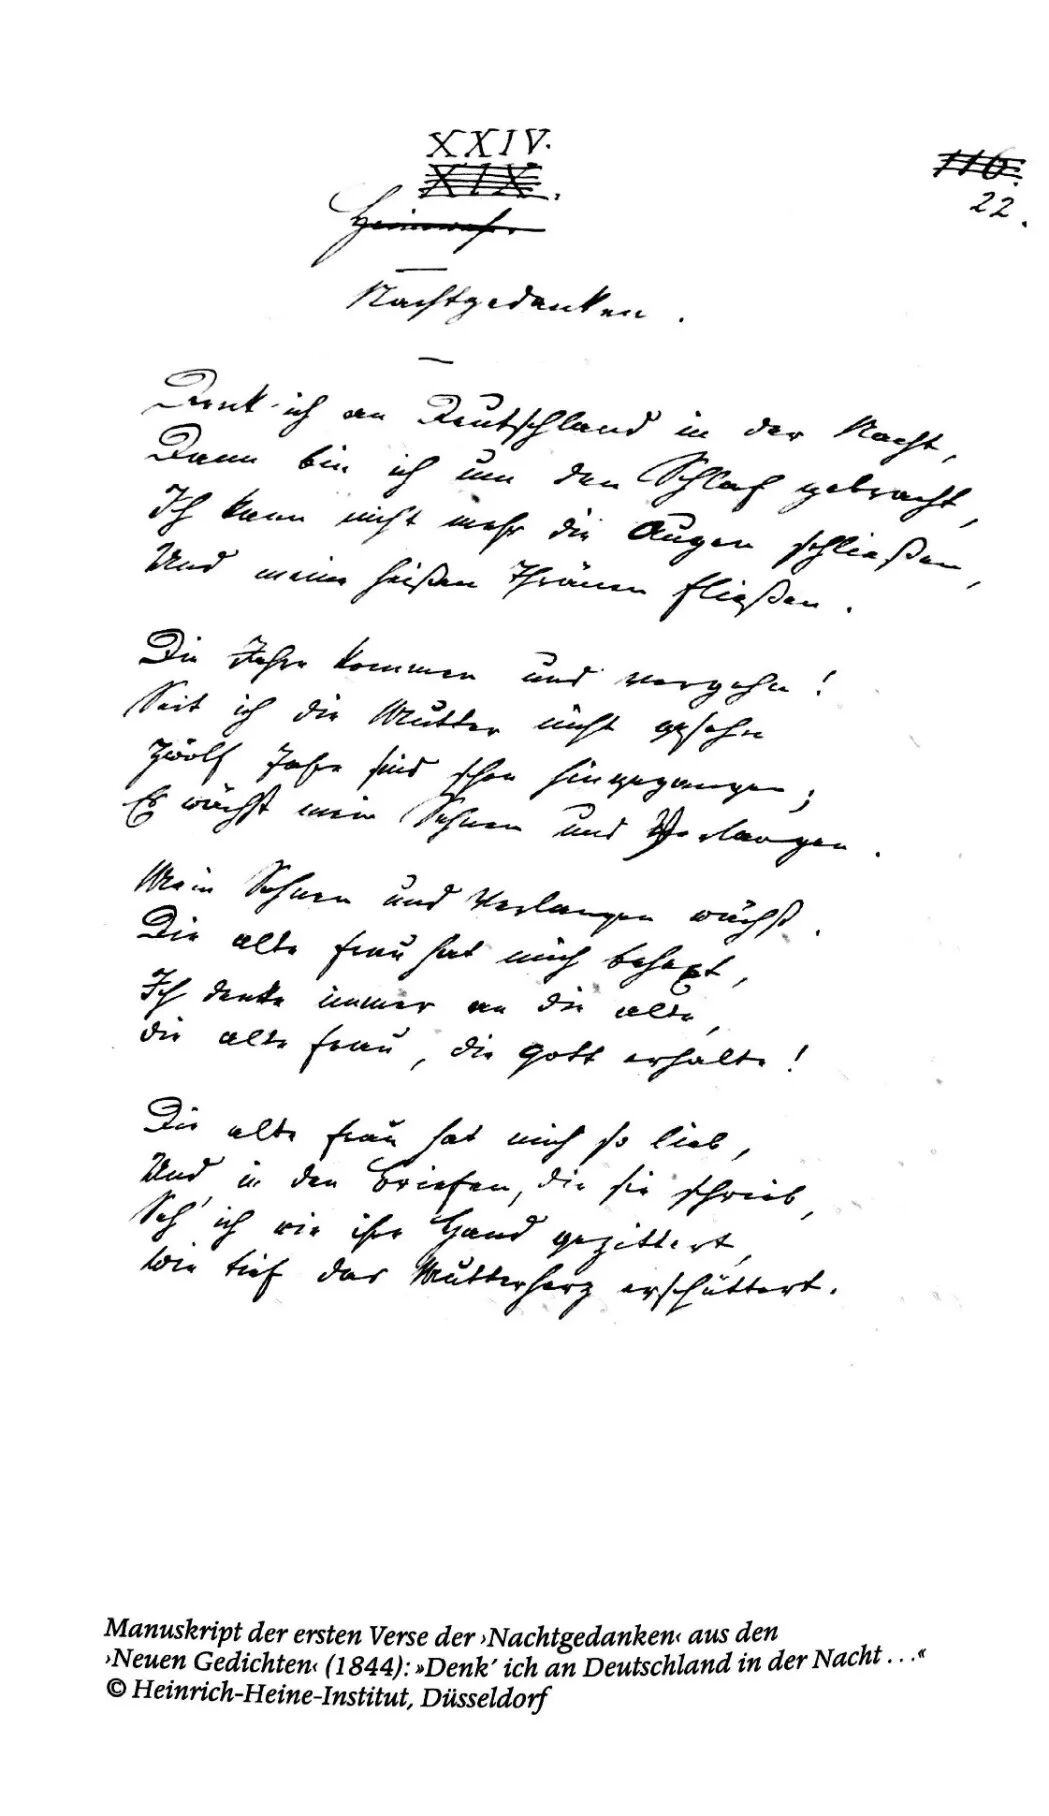 XXIV.
XIX.
116.
22.
Heimweh.
Nachtgedanken.
Denk ich an Deutschland in der Nacht,
Dann bin ich um den Schlaf gebracht,
Ich kann nicht mehr die Augen schließen,
Und meine heißen Thränen fließen.
Die Jahre kommen und vergehn!
Seit ich die Mutter nicht gesehn
Zwölf Jahre sind schon hingegangen;
Es wächst mein Sehnen und Verlangen.
Mein Sehnen und Verlangen wächst.
Die alte Frau hat mich behext,
Ich denke immer an die alte,
die alte Frau, die Gott erhalte!
Die alte Frau hat mich so lieb,
Und in den Briefen, die sie schrieb,
Seh' ich wie ihre Hand gezittert,
Wie tief das Mutterherz erschüttert.
Manuskript der ersten Verse der ›Nachtgedanken‹ aus den
›Neuen Gedichten‹ (1844): »Denk´ ich an Deutschland in der Nacht ...«
© Heinrich-Heine-Institut, Düsseldorf